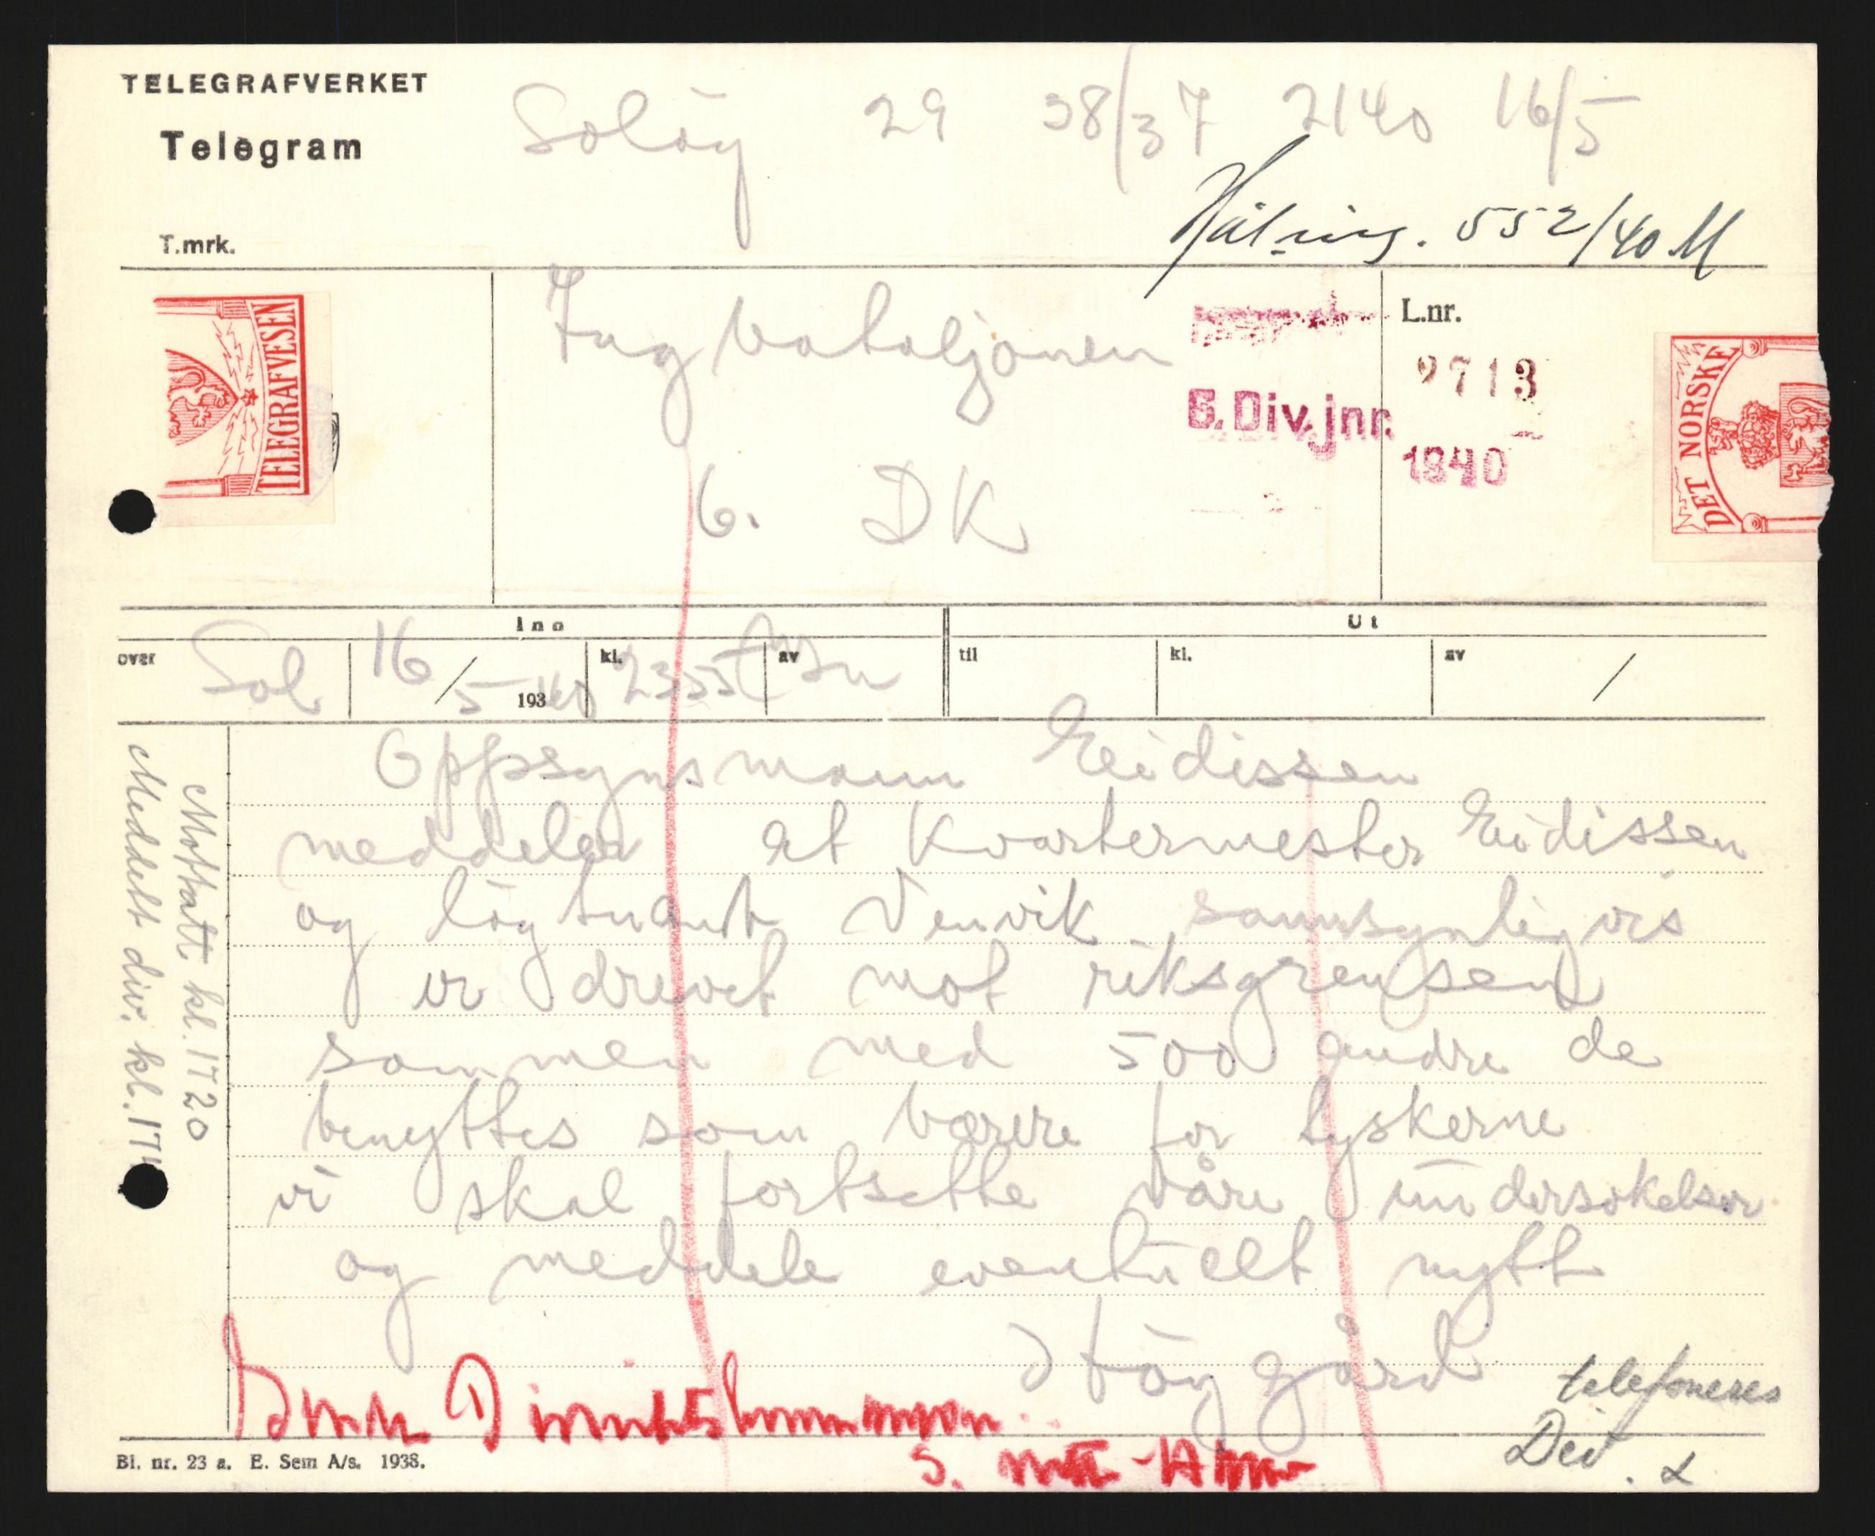 TELEGRAFVERKET
Telegram
Soløy 29 38/37 2140 16/5
552/40 M
T.mrk.
TELEGRAFVESEN
Ing bataljonen
6. DK
6. Div. jnr.
L.nr.
2713
1840
DET NORSKE
Inn
Ut
over Sol 16/5 1940 kl. 2355 av
til kl. av /
Oppsynsmann Eidissen
meddeler at Kvartermester Eidissen
og løytnant Venvik sannsynligvis
er drevet mot riksgrensen
sammen med 500 andre de
benyttes som bærere for tyskerne
vi skal fortsette våre undersøkelser
og meddele eventuelt nytt
Høygård
Mottatt kl. 1720
Meddelt div. kl. 17
telefoneres
Div. 2
Bl. nr. 23 a. E. Sem A/s. 1938.